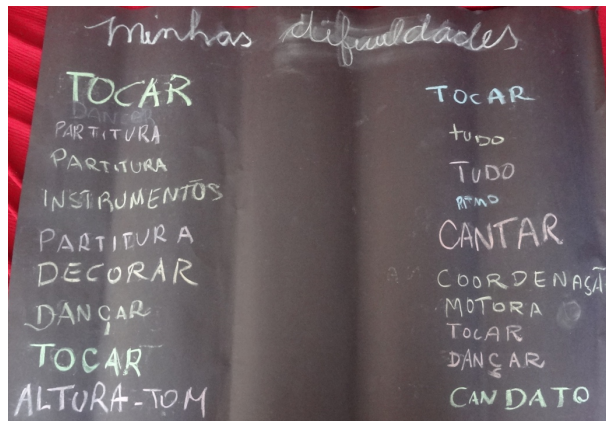 minhas dificuldades
TOCAR
PARTITURA
PARTITURA
INSTRUMENTOS
PARTITURA
DECORAR
DANÇAR
TOCAR
ALTURA-TOM
TOCAR
tUDO
TUDO
RITMO
CANTAR
COORDENAÇÃ
MOTORA
TOCAR
DANÇAR
CANDATO